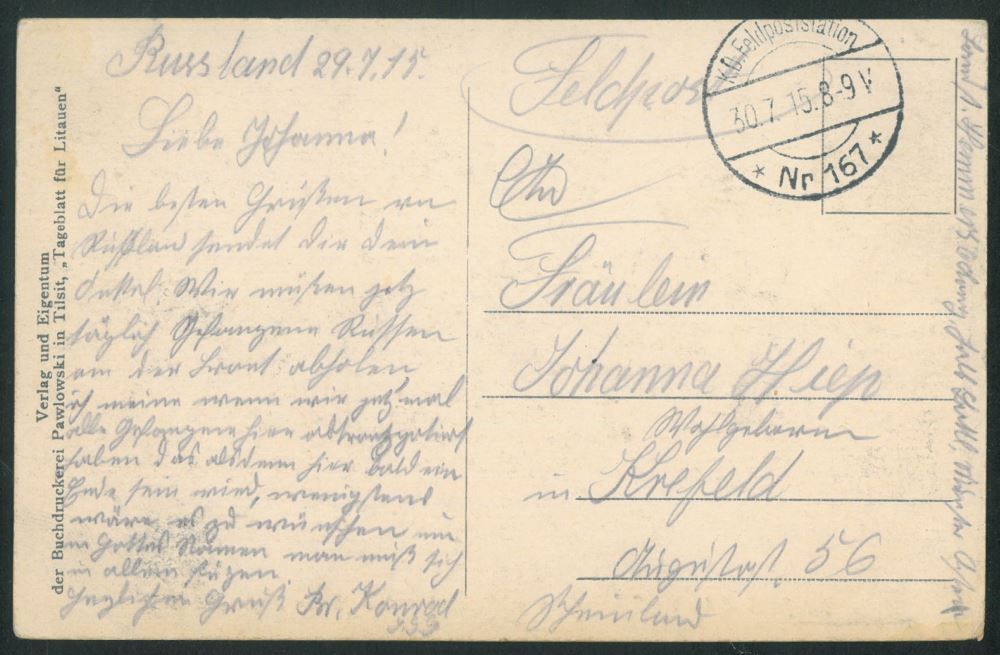 Russland 29.7.15.
Liebe Johanna!
Die besten Grüßen von
Rußland sendet Dir Dein
Onkel. Wir müßen jetz
täglich Gefangene Russen
an der Front abholen,
ich meine wenn wir jetz mal
alle Gefangene hier abtransportiert
haben das alsdenn hier bald ein
Ende sein wird, wenigstens
wäre es zu wünschen nun
in Gottes Namen man muß sich
in allem fügen.
Herzlichen Gruß Br. Konrad
Verlag und Eigentum
der Buchdruckerei Pawlowski in Tilsit, „Tageblatt für Litauen“
Feldpost
K.D. Feldpoststation
30.7.15.8-9V
* Nr 167 *
An
Fräulein
Johanna Hiep
Wohlgeboren
in Krefeld
Augustast. 56
Rheinland